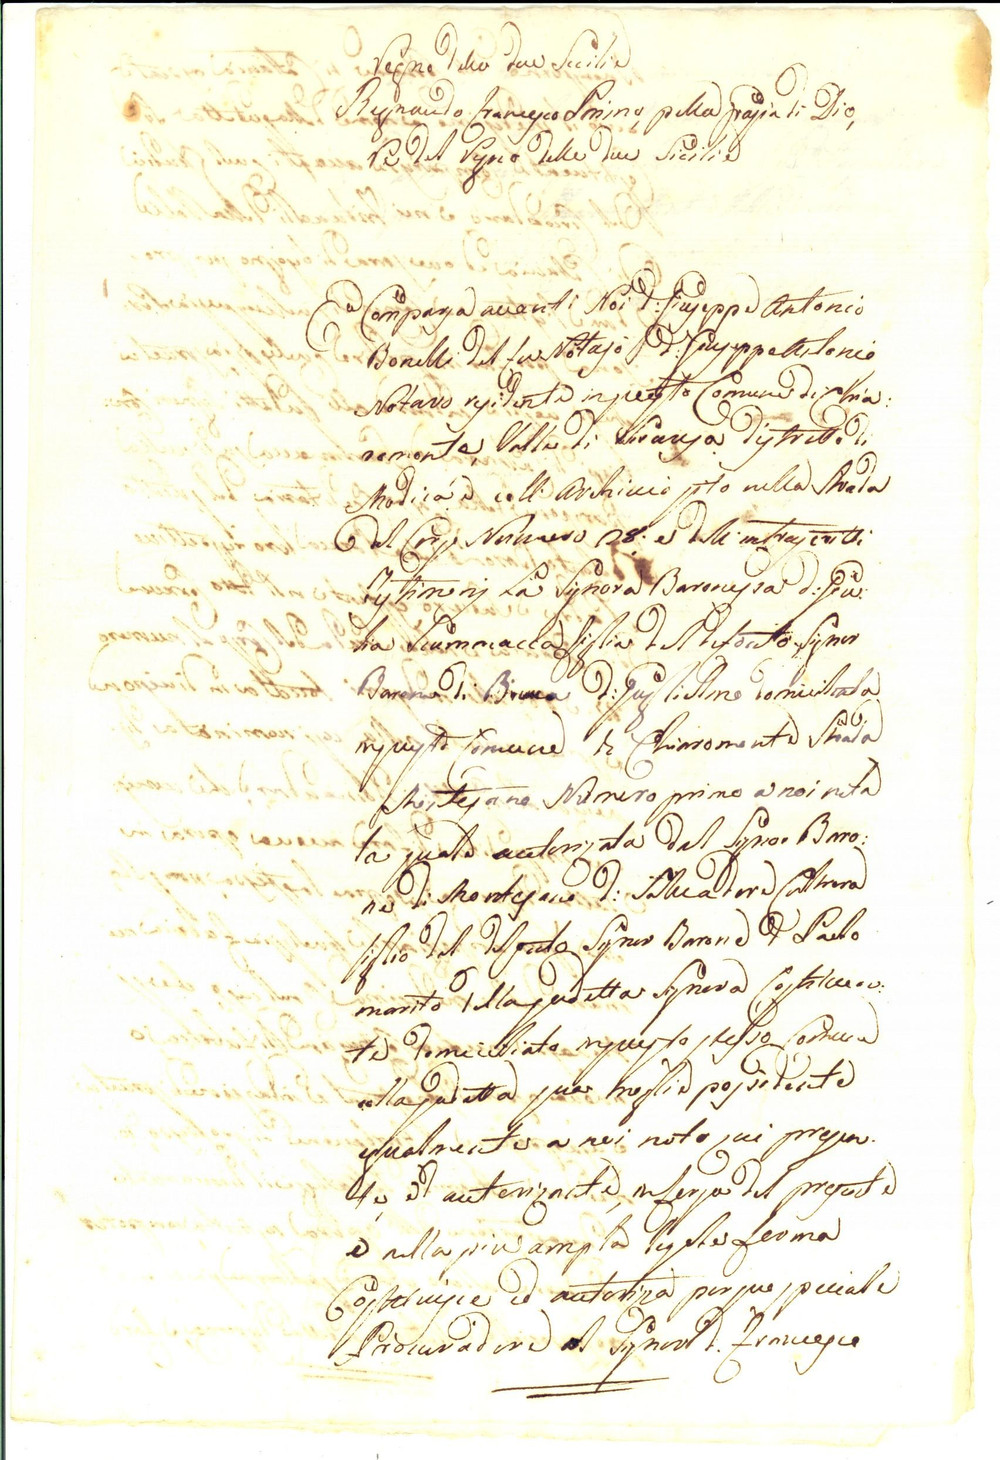 Regno delle due Sicilie
Regnando Francesco Primo, pella grazia di Dio,
Re del Regno delle due Sicilie
Comparsa avanti Noi D: Giuseppe Antonio
Bonelli del fu Notajo D: Giuseppe Antonio
Notaro residente in questo Comune di Chia:
ramonte, Valle di Siracusa, distretto di
Modica, e coll' Archivio sito nella Strada
del Corso Numero 28: e delli infrascritti
Testimonj La Signora Baronessa D: Giu:
lia Scummacca figlia del defonto Signor
Barone di D: Guglielmo domiciliata
in questo Comune di Chiaramonte Strada
Numero primo a noi nota
la quale autorizata dal Signor Baro:
ne di D: Salvadore
figlio del defonto Signor Barone D: Paolo
marito della sudetta Signora Costituen:
te domiciliato in questo stesso Comune
colla sudetta sua moglie possidente
qualmente a noi noto qui presen
te, ed autorizante, in forza del presente
e nella piu ampla legale forma
Costituisce ed autoriza per suo speciale
Procuradore al Signor D. Francesco